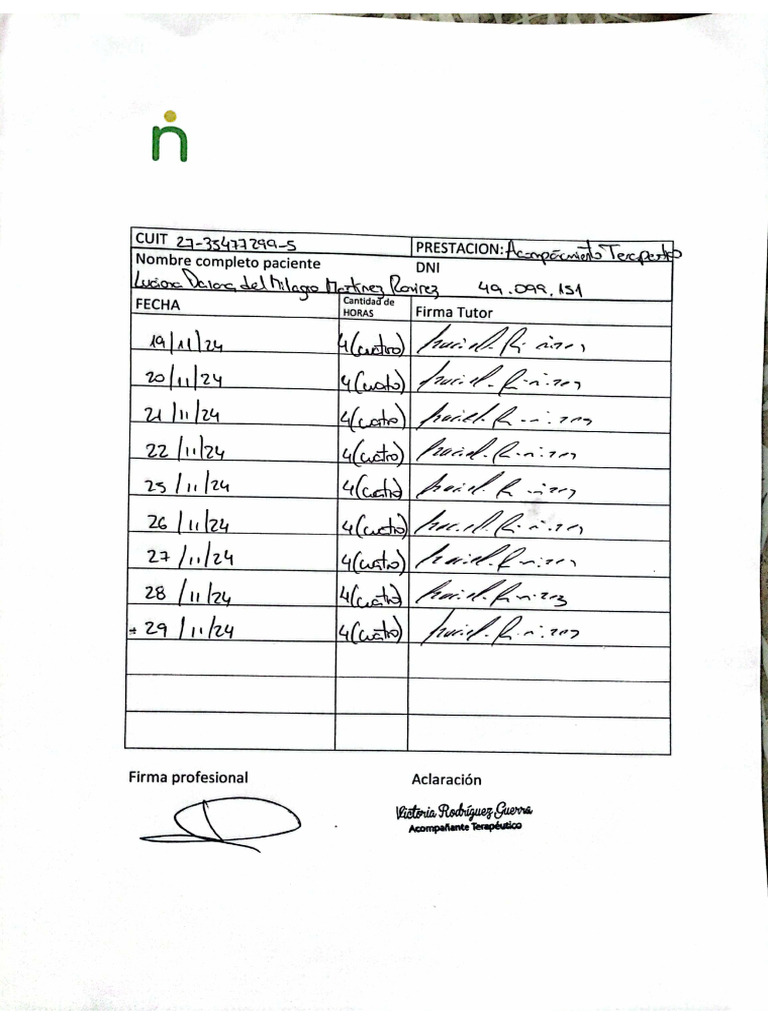 CUIT 27-35477299-5 PRESTACION: Acompañamiento Terapeutico
Nombre completo paciente DNI
Luciana Daiana del Milagro Martinez Ramirez 49.099.151
FECHA Cantidad de HORAS Firma Tutor
19/11/24 4(cuatro)
20/11/24 4(cuatro)
21/11/24 4(cuatro)
22/11/24 4(cuatro)
25/11/24 4(cuatro)
26/11/24 4(cuatro)
27/11/24 4(cuatro)
28/11/24 4(cuatro)
29/11/24 4(cuatro)
Firma profesional Aclaración
Victoria Rodríguez Guerra
Acompañante Terapéutico